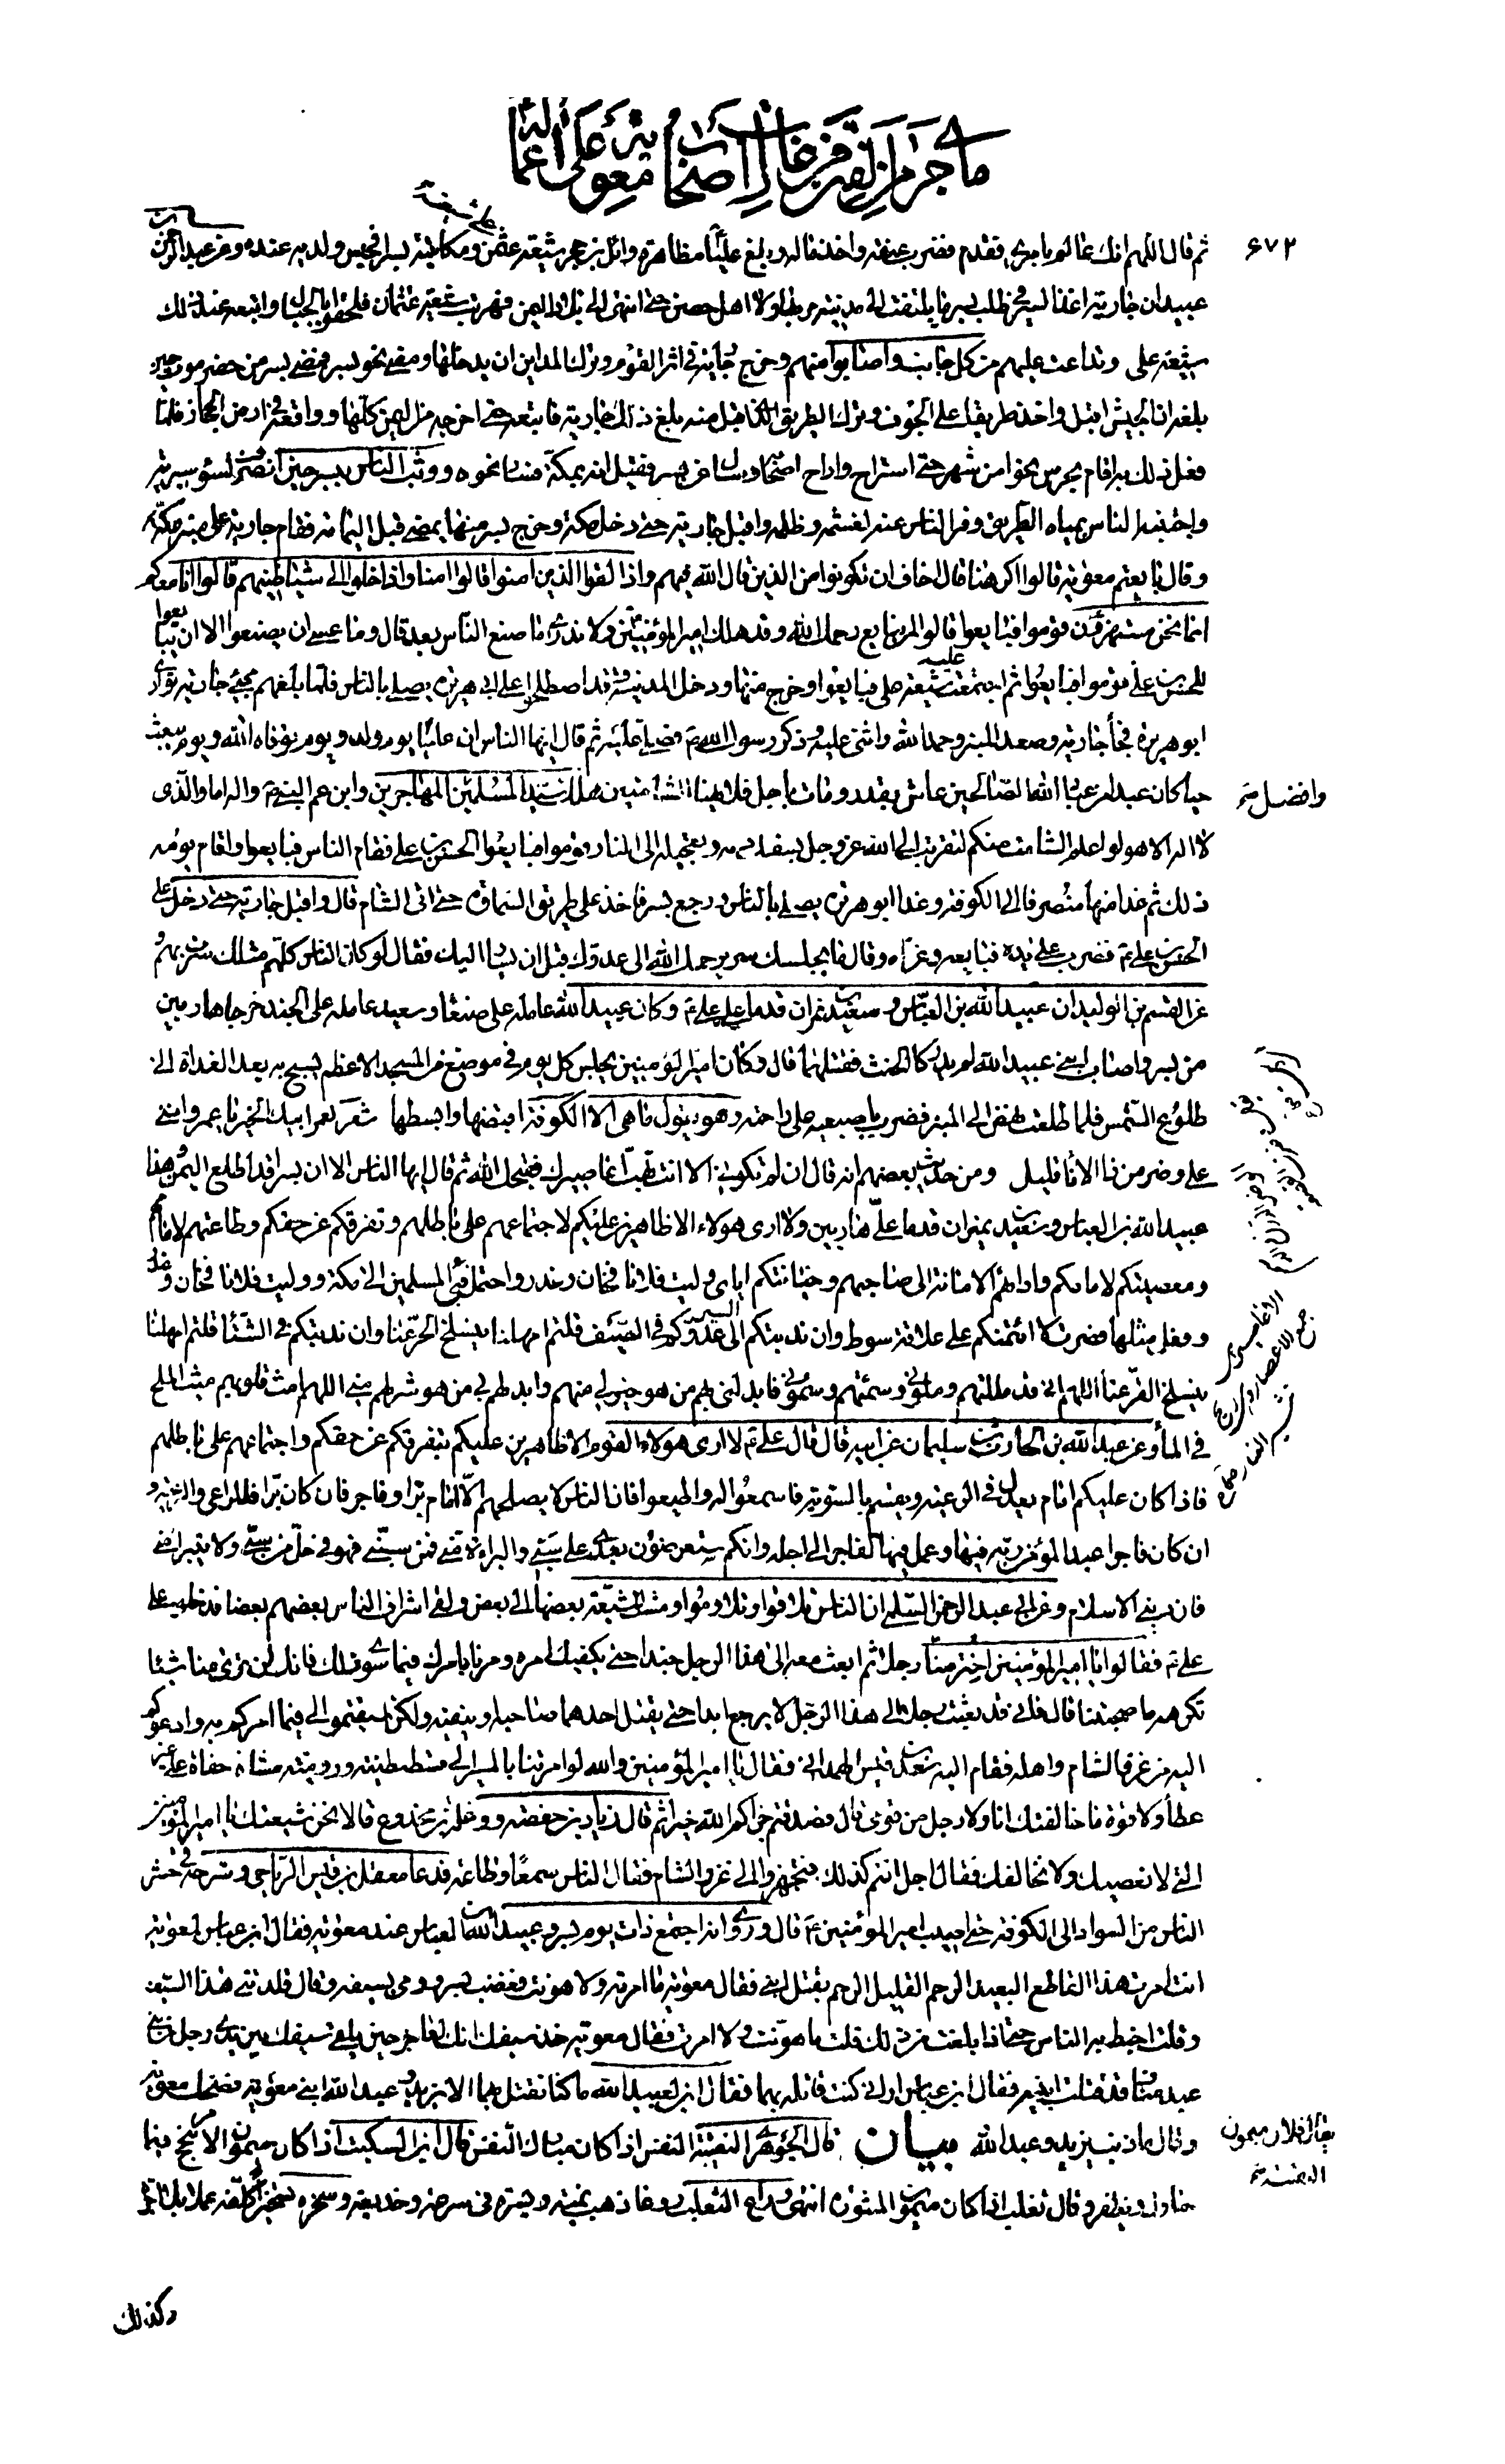 ما جرى من الفتن من غارات اصحاب معوية على اعماله
٦٧٢
ثم قال اللهم انك عالم فقدم فضرب عنقه واخذ ماله وبلغ عليا مظاهرة وائل بن حجر شيعة عثمن ومكاتبته بسرا فحبس ولديه عنده وعن عبد الرحمن بن
عبيد ان جارية اغذ السير في طلب بسر ما يلتفت الى مدينة مر بها ولا اهل حصن حتى انتهى الى بلاد اليمن فهربت شيعة عثمان فلحقوا بالجبال واتبعه عند ذلك
شيعة على وتداعت عليهم من كل جانب واصابوا منهم وخرج جارية في اثر القوم وترك المداين ان يدخلها ومضى نحو بسر فمضى بسر من حضرموت حين
بلغه ان الجيش اقبل واخذ طريقا على الجوف وترك الطريق الذى اقبل منه وبلغ ذلك جارية فاتبعه حتى اخرجه من اليمن كلها وواقعه في ارض الحجاز فلما
فعل ذلك به اقام بحرس نحوا من شهر حتى استراح واراح اصحابه وسال عن بسر فقيل انه بمكة فسار نحوه ووثب الناس ببسر حين انصرف لسوء سيرته
واجتنبه الناس بمياه الطريق وفر الناس عنه لغشمه وظلمه واقبل جارية حتى دخل مكة وخرج بسر منها يمضى قبل اليمامة فقام جارية على منبر مكة
وقال بايعتم معوية قالوا اكرهنا قال اخاف ان تكونوا من الذين قال الله فيهم واذا لقوا الذين امنوا قالوا امنا واذا خلوا الى شياطينهم قالوا انا معكم
انما نحن مستهزؤن قوموا فبايعوا قالوا لمن نبايع رحمك الله وقد هلك امير المؤمنين ولا ندرى ما صنع الناس بعد قال وما عسى ان يصنعوا الا ان يبايعوا
للحسن بن على قوموا فبايعوا ثم اجتمعت عليه شيعة على فبايعوا وخرج منها ودخل المدينة وقد اصطلحوا على ابى هريرة يصلى بالناس فلما بلغهم مجئ جارية توارى
ابو هريرة فجاء جارية وصعد المنبر وحمد الله واثنى عليه وذكر رسول الله فصلى عليه ثم قال ايها الناس ان عليا يوم ولد ويوم توفاه الله ويوم يبعث
حيا كان عبدا من عباد الله الصالحين عاش بقدر ومات باجل فلا يهنأ الشامتين هلك سيد المسلمين المهاجرين وابن عم النبي اما والذى
وافضل
لا اله الا هو لو اعلم الشامت منكم لتقربت الى الله عز وجل بسفك دمه وتعجيله الى النار قوموا فبايعوا الحسن بن على فقام الناس فبايعوا واقام يومه
ذلك ثم غدا منها منصرفا الى الكوفة وغدا ابو هريرة يصلى بالناس ورجع بسر فاخذ على طريق السماوة حتى اتى الشام قال واقبل جارية حتى دخل على
الحسن بن على فضرب على يده فبايعه وعزاه وقال ما يجلسك سر يرحمك الله الى عدوك قبل ان يسار اليك فقال لو كان الناس كلهم مثلك سرت بهم و
عن القسم بن الوليد ان عبيد الله بن العباس وسعيد بن نمران قدما على على وكان عبيد الله عامله على صنعا وسعيد عامله على الجند خرجا هاربين
من بسر واصاب ابنى عبيد الله لم يدركا الحنث فقتلهما قال وكان امير المؤمنين يجلس كل يوم في موضع من المسجد الاعظم يسبح به بعد الغداة الى
طلوع الشمس فلما طلعت نهض الى المنبر فضرب باصبعيه على راحته وهو يقول ما هى الا الكوفة اقبضها وابسطها شعر لعمر ابيك الخير يا عمرو اننى
على وضر من ذا الانا قليل ومن حديث بعضهم انه قال ان لم تكونى الا انت تهب اعاصيرك فقبحك الله ثم قال ايها الناس الا ان بسرا قد اطلع اليمن وهذا
عبيد الله بن العباس وسعيد بن نمران قدما على هاربين ولا ارى هولاء الا ظاهرين عليكم لاجتماعهم على باطلهم وتفرقكم عن حقكم وطاعتهم لامامهم
ومعصيتكم لامامكم وادائهم الامانة الى صاحبهم وخيانتكم اياى وليت فلانا فخان وغدر واحتمل فئ المسلمين الى مكة ووليت فلانا فخان وغدر
وفعل مثلها فصرت لا ائتمنكم على علاقة سوط وان ندبتكم الى السير الى عدوكم في الصيف قلتم امهلنا ينسلخ الحر عنا وان ندبتكم في الشتا قلتم امهلنا
ينسلخ القر عنا اللهم انى قد مللتهم وملونى وسئمتهم وسئمونى فابدلنى بهم من هو خير لى منهم وابدلهم بى من هو شر لهم منى اللهم امث قلوبهم ميث الملح
في الماء وعن عبد الله بن الحارث بن سليمان عن ابيه قال قال على لا ارى هولاء القوم الا ظاهرين عليكم بتفرقكم عن حقكم واجتماعهم على باطلهم
فاذا كان عليكم امام يعدل في الرعية ويقسم بالسوية فاسمعوا له واطيعوا فان الناس لا يصلحهم الا امام بر او فاجر فان كان برا فللراعى والرعية و
ان كان فاجرا عبد المؤمن ربه فيها وعمل فيها الفاجر الى اجله وانكم ستعرضون بعدى على سبى والبراءة منى فمن سبنى فهو في حل من سبى ولا يتبرأ منى
فان دينى الاسلام وعن ابى عبد الرحمن السلمى ان الناس تلاقوا وتلاوموا ومشت الشيعة بعضها الى بعض ولقى اشراف الناس بعضهم بعضا فدخلوا على
على فقالوا يا امير المؤمنين اختر منا رجلا ثم ابعث معه الى هذا الرجل جندا حتى يكفيك امره ومرنا بامرك فيما سوى ذلك فانك لن ترى منا شيئا
تكرهه ما صحبتنا قال فانى قد بعثت رجلا الى هذا الرجل لا يرجع ابدا حتى يقتل احدهما صاحبه او ينفيه ولكن استقيموا لى فيما امركم به وادعوكم
اليه من غزو الشام واهله فقام اليه سعيد بن قيس الهمدانى فقال يا امير المؤمنين والله لو امرتنا بالمسير الى قسطنطينية ورومية مشاة حفاة على غير
عطاء ولا قوة ما خالفتك انا ولا رجل من قومى قال فصدقتم جزاكم الله خيرا ثم قال زياد بن حفصة ووعلة بن مخدوع فقالا نحن شيعتك يا امير المؤمنين
التى لا نعصيك ولا نخالفك فقال اجل انتم كذلك فتجهزوا الى غزو الشام فقال الناس سمعا وطاعة فدعا معقل بن قيس الرياحى وسرحه في حشر
الناس من السواد الى الكوفة حتى اصيب امير المؤمنين قال وروى انه اجتمع ذات يوم بسر وعبيد الله بن العباس عند معوية فقال ابن عباس لمعوية
انت امرت هذا القاطع البعيد الرحم القليل الرحم بقتل ابنى فقال معوية ما امرته ولا هويت فغضب بسر ورمى بسيفه وقال قلدتنى هذا السيف
وقلت اخبط به الناس حتى اذا بلغت من ذلك قلت ما هويت ولا امرت فقال معوية خذ سيفك انك لعاجز حين تلقى سيفك بين يدى رجل من بنى
عبد مناف قد قتلت ابنيه فقال ابن عباس اترانى كنت قاتله بهما فقال ابن لعبيد الله ما كنا نقتل بهما الا يزيد وعبد الله ابنى معوية فضحك معوية
وقال ما ذنب يزيد وعبد الله بيان قال الجوهرى النقيبة النفس اذا كان مبارك النفس قال ابن السكيت اذا كان ميمون الامر ينجح فيما
يقال فلان ميمون
النقيبة
حاول ويظفر وقال ثعلب اذا كان ميمون المشورة انتهى وراغ الثعلب روغا ذهب يمنة ويسرة في سرعة وخديعة وسخره تسخيرا كلفه عملا بلا اجرة
وكذلك